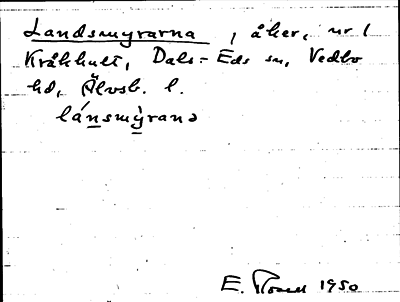 Landsmyrarna, åker, nr 1
Kråkhult, Dals-Eds sn, Vedbo
hd, Älvsb. l.
lánsmỳrana
E. Rosell 1950